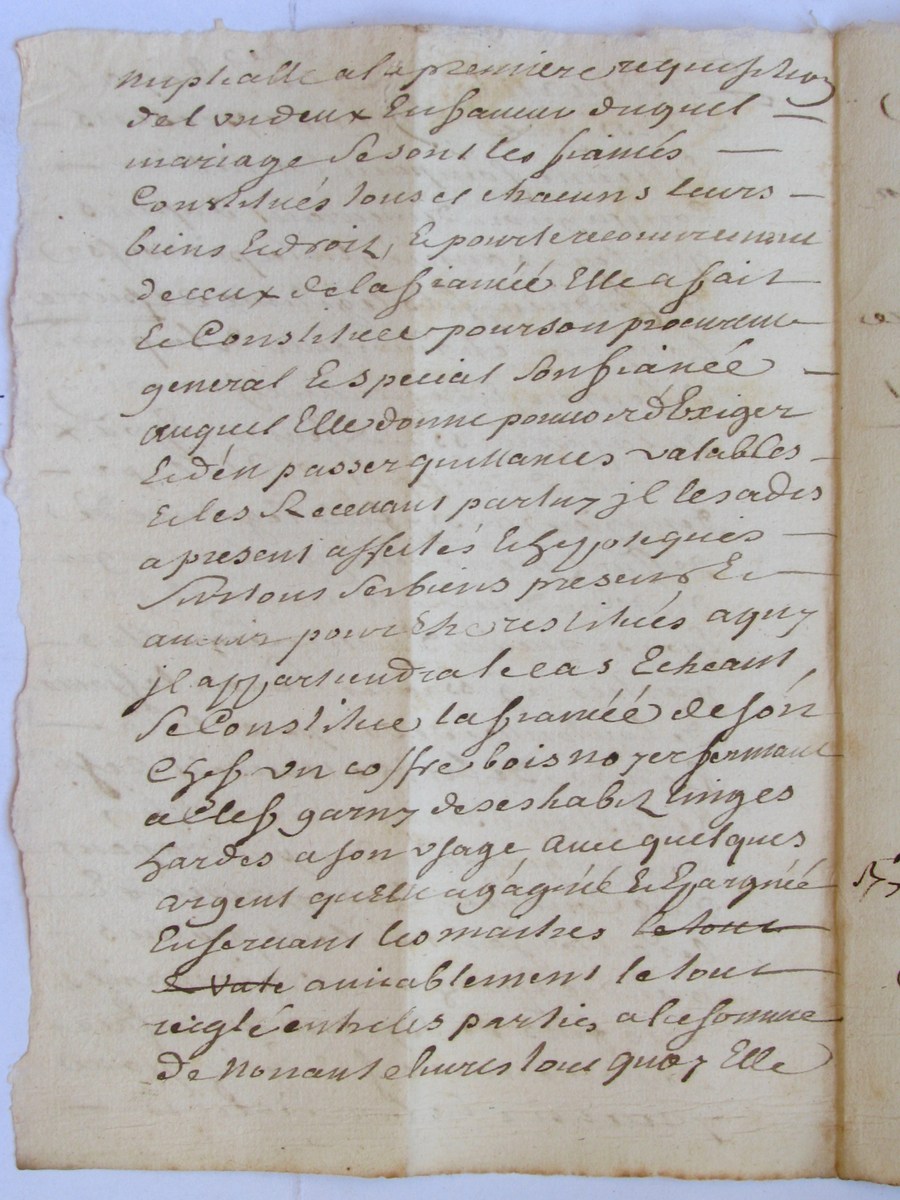 nuptialle a la premiere requisition
de l'un deux En faveur duquel —
mariage se sont les fiancés —
Constitués tous et chacuns leurs —
biens Et droitz, Et pour le recouvrement
de ceux de la fiancéé Elle a fait
Et Constitué pour son procureur
general Et special son fiancéé —
auquel Elle donne pouvoir d'Exiger
Et d'en passer quittances valables —
Et les Recevant par luy jl les a des
a present affectés Et hypotqués —
sur tous ses biens presents Et —
auenir pour Etre restitués a quy
jl appartiendra le cas Echeant
se Constitue la fiancéé de són
Chef un coffre bois noyer fermant
a Clef garny de ses habitz linges
hardes a son usage avec quelques
argent quelle a gágnéé Et Epargnéé
En servant les maitres le tout
Evalué amiablement le tout
reiglé entre les parties a la somme
de nonante livres tout quoy Elle